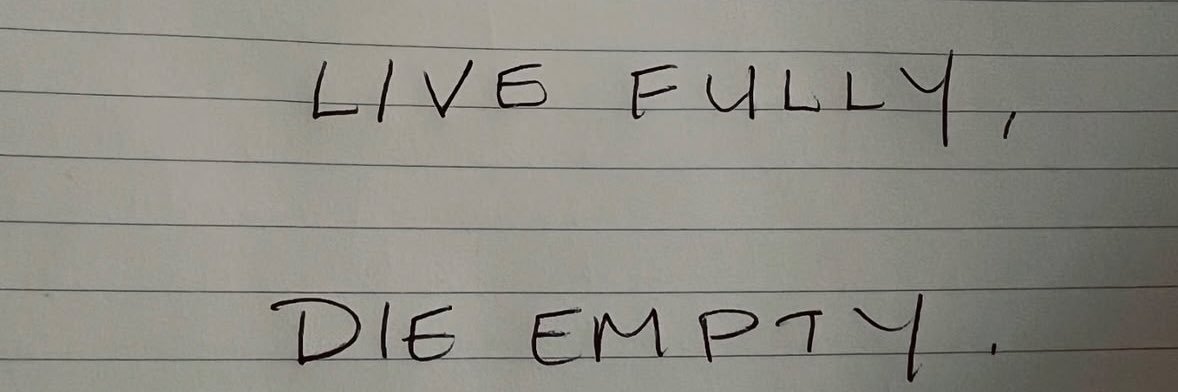 LIVE FULLY,
DIE EMPTY.